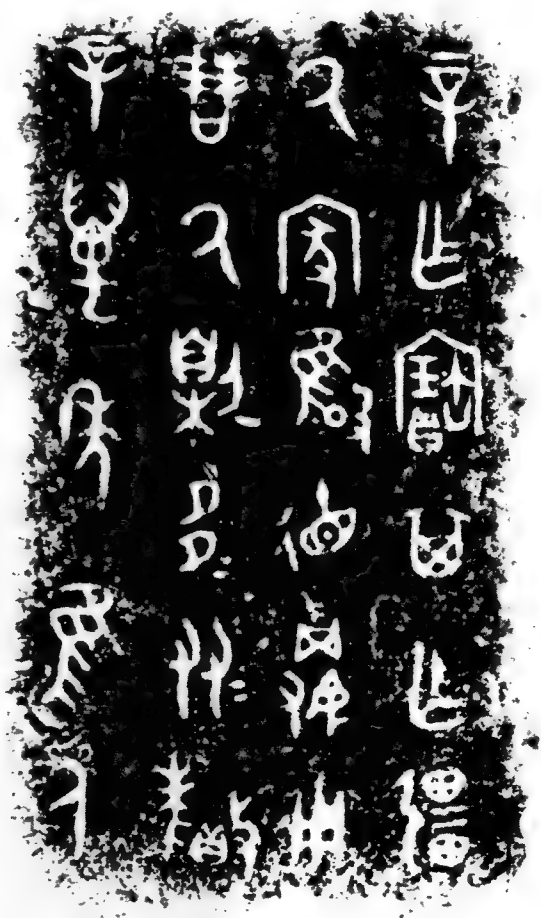 辛乍寶其亡彊
氒家雝德用
氒剝多友
辛萬年隹人